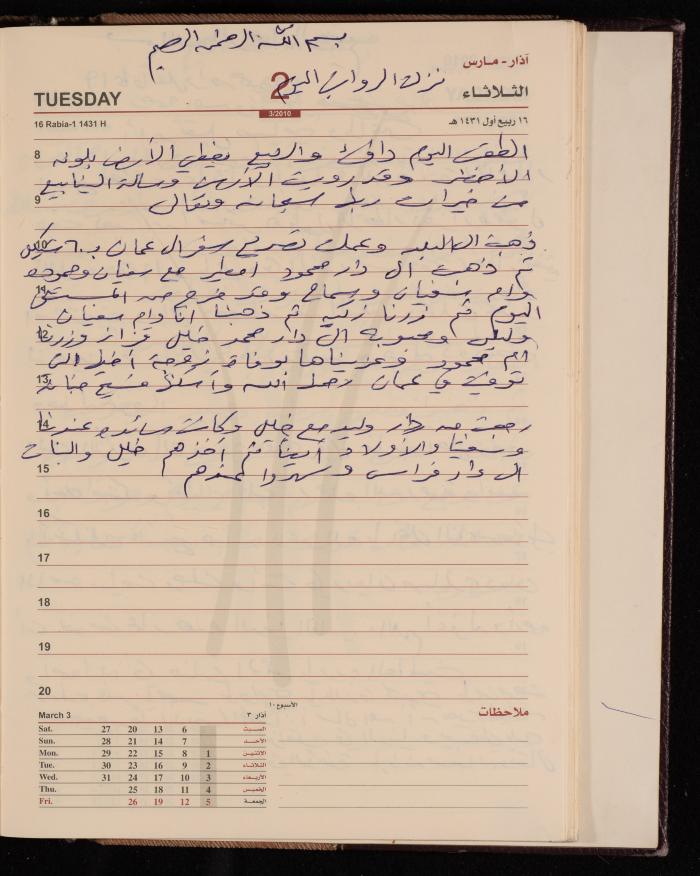 بسم الله الرحمن الرحيم
آذار - مارس
نزلت الرواتب اليوم
TUESDAY
2
الثلاثاء
3/2010
16 Rabia-1 1431 H
١٦ ربيع أول ١٤٣١ هـ
8 الطقس اليوم دافئ والربيع يغطي الأرض بلونه
الأخضر وقد رويت الأرض وسالت الينابيع
9 من خيرات ربنا سبحانه وتعالى
10 ذهبت الى البلد وعملت تصريح سفر الى عمان بـ ٦٠ شيكل
ثم ذهبت الى دار محمود امطير مع سفيان وحموده
11 وام سفيان وسماح وقد خرج من المستشفى
اليوم ثم زرنا زكيه ثم ذهبنا انا وام سفيان
12 وليلى ومحبوبه الى دار محمد خليل فراز وزرنا
ام محمود وعزيناها بوفاة زوجة أخيها التي
13 توفيت في عمان رحمها الله وأسكنها فسيح جنانه
14 رجعت من دار وليد مع خليل وكانت سائده عندنا
والأولاد أيضاً ثم أخذهم خليل والبنات
15 الى دار فراس وسهروا عندهم
16
17
18
19
20
March 3
آذار ٣
الأسبوع ١٠
ملاحظات
Sat. 27 20 13 6 السبت
Sun. 28 21 14 7 الأحد
Mon. 29 22 15 8 1 الاثنين
Tue. 30 23 16 9 2 الثلاثاء
Wed. 31 24 17 10 3 الأربعاء
Thu. 25 18 11 4 الخميس
Fri. 26 19 12 5 الجمعة